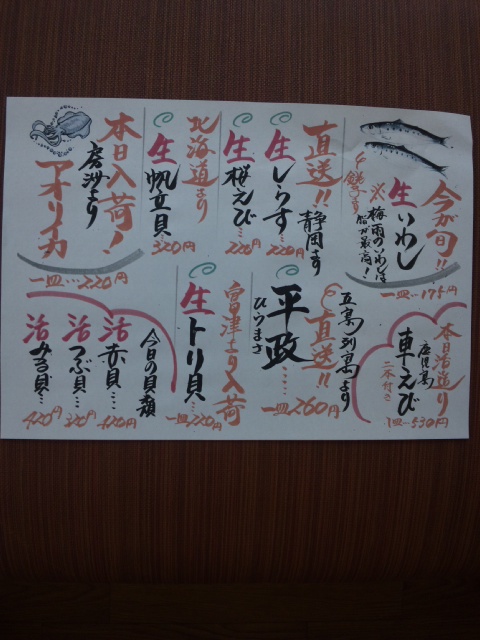 今が旬!!
生いわし
※梅雨のいわしは
脂が最高!
一皿…175円
直送!!
静岡より
生しらす…
220円
生桜えび…
220円
北海道より
生帆立貝…
320円
本日入荷!
房州より
アオリイカ
一皿……220円
本日活造り
鹿児島
車えび
二本付き
1皿…530円
五島列島より
直送!!
平政……
ひらまさ
一皿…260円
富津より入荷
生トリ貝…
一皿…220円
今日の貝類
活赤貝…
420円
活つぶ貝…
320円
活みる貝…
420円